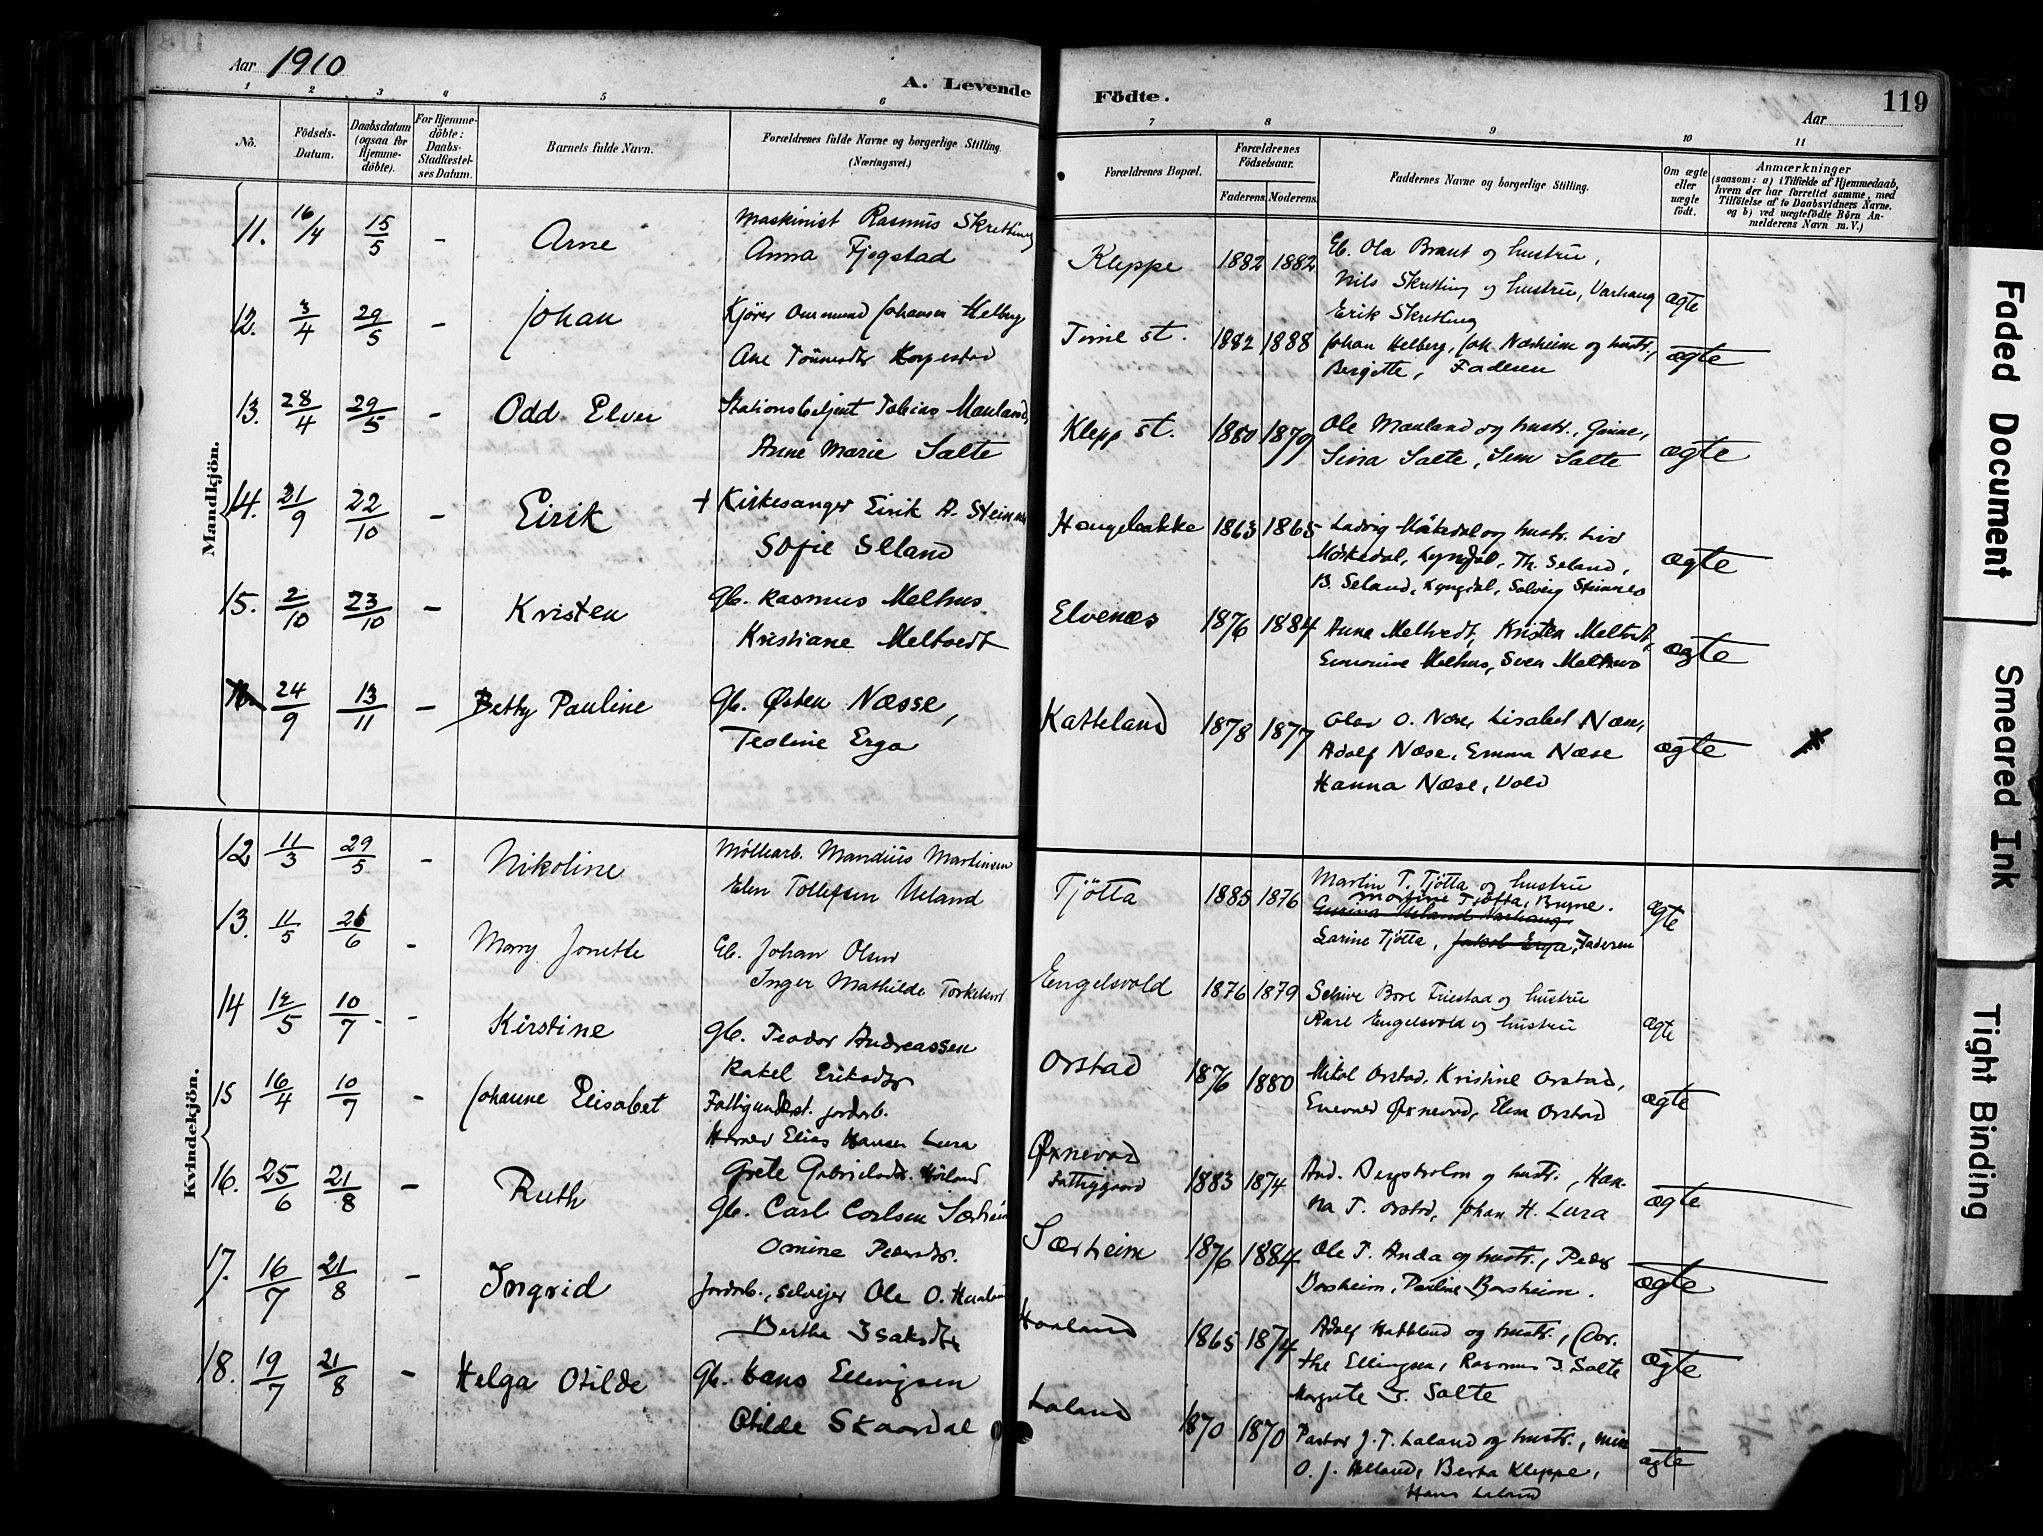 Aar 1910
A. Levende Födte.
119
Aar
1 2 3 4 5 6 7 8 9 10 11
No.
Födsels-Datum.
Daabsdatum (ogsaa for Hjemme-döbte).
For Hjemme-döbte: Daabs-Stadfæstel-ses Datum.
Barnets fulde Navn.
Forældrenes fulde Navne og borgerlige Stilling.
(Næringsvei.)
Forældrenes Bopæl.
Forældrenes Födselsaar.
Faderens. Moderens.
Faddernes Navne og borgerlige Stilling.
Om ægte eller uægte födt.
Anmærkninger
(saasom: a) i Tilfælde af Hjemmedaab, hvem der har forrettet samme, med Tilföielse af to Daabsvidners Navne. og b) ved uægtefödte Börn An-melderens Navn m. V.)
Mandkjön.
11. 16/4 15/5 - Arne Maskinist Rasmus Skretting Kleppe 1882 1882 Gb. Ola Braut og hustru,
Anna Fjogstad Nils Skretting og hustru, Varhaug ægte
Erik Skretting
12. 3/4 29/5 - Johan Kjører Johansen Helberg Time st. 1882 1888 Johan Helberg, Joh. Næsheim og hustr.,
Ane Tönnesdtr Bergitte, Faderen ægte
13. 28/4 29/5 - Odd Elver Stationsbetjent Tobias Mauland, Klepp st. 1880 1879 Ole Mauland og hustr.,
Anne Marie Salte Sina Salte, Sem Salte ægte
14. 21/9 22/10 - Eirik + Kirkesanger Eirik A. 1863 1865 Ludvig og hustr. Liv
Sofie Seland Th. Seland, ægte
B. Seland, Lyngdal, Solveig
15. 2/10 23/10 - Kristen Gb. Rasmus Melhus Elvenæs 1876 1884 Anna Meltvedt, Kristen
Kristiane Meltvedt Melhus, Sven ægte
24/9 13/11 - Betty Pauline Gb. Østen Næsse, Katteland 1878 1877 Olav O. Næse, Lisabet Næse,
Teoline Erga Adolf Næse, Emma Næse ægte
Hanna Næse, Vold
Kvindekjön.
12 11/3 29/5 - Nikoline Møllearb. Mandius Martinsen Tjötta 1885 1876 Martin T. Tjötta og hustru
Elen Tollefsen Ueland Martine Tjøtta, Bryne. ægte
Larine Tjötta, Jakob Erga, Faderen
13. 11/5 26/6 - Mary Jonette Gb. Johan Olsen Engelsvold 1876 1879 Bore Friestad og hustru
Inger Mathilde Karl Engelsvold og hustru ægte
14 12/5 10/7 - Kirstine Gb. Teodor Andreassen Orstad 1876 1880 Mikal Orstad, Kristine Orstad,
Rakel Eriksdtr Øxnevad, Elen Orstad ægte
15 16/4 10/7 - Johanne Elisabet Fattigunderst. jordarb. Øxnevad
Elias Hansen Lura Fattiggaard 1883 1874 And. og hustr., Han-
Grete Gabrielsdtr. na T. Orstad, Johan H. Lura ægte
16. 25/6 21/8 - Ruth Gb. Carl Carlsen Særheim Særheim 1876 1884 Ole T. Anda og hustr., Peder
Omine Pedersdtr. Borsheim, Pauline Borsheim. ægte
17. 16/7 21/8 - Ingrid Jordarb., selveier Ole O. Haaland Haaland 1865 1874 Adolf og hustr., Dor-
Bertha Isaksdtr the Ellingsen, Rasmus I. Salte ægte
Margrete I. Salte
18. 19/7 21/8 - Helga Otilde Gb. Hans Ellingsen Laland 1870 1870 Pastor J. T. Laland og hustr.,
Otilde Skaardal O. J. Berta Kleppe, ægte
Hans Laland
Faded Document
Smeared Ink
Tight Binding